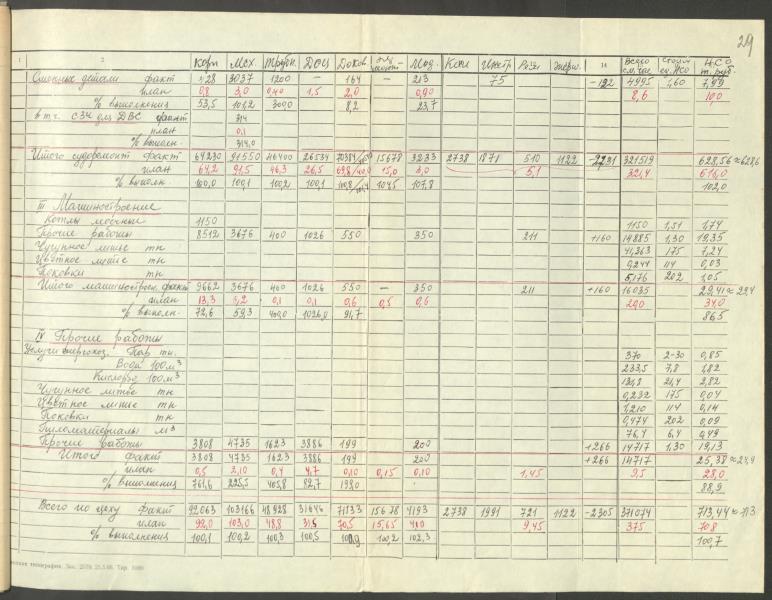 29
1 2 Корп Мех. Трубн. ДОЦ Доков Мод. Котл Инстр. 14 Всего НСО
т. руб.
Сменные детали факт 3037 1200 — 164 213 75 4995 1,60 7,99
план 0,8 3,0 0,40 1,5 2,0 0,90 8,6 10,0
% выполнения 53,5 101,2 300,0 8,2 23,7
в т.ч. СЗЧ для ДВС факт 314
план 0,1
% выполн. 314,0
Итого судоремонт факт 64230 91550 46400 26534 15678 3233 2738 1871 510 1122 321519 628,56 ≈ 628,6
план 64,2 91,5 46,3 26,5 15,0 3,0 5,1 321,4 616,0
% выполн. 100,0 100,1 100,2 100,1 104,5 107,8 102,0
III Машиностроение
Котлы моечные 1150 1150 1,51 1,74
Прочие работы 8512 3676 400 1026 550 350 211 +160 14885 1,30 19,35
Чугунное литье тн 41,363 175 7,24
Цветное литье тн 0,244 114 0,03
Поковки тн 5,176 202 1,05
Итого машиностроен. факт 9662 3676 400 1026 550 — 350 211 +160 16035 29,41 ≈ 29,4
план 13,3 6,2 0,1 0,1 0,6 0,5 0,6 29,0 34,0
% выполн. 72,6 59,3 400,0 1026,0 91,7 86,5
IV Прочие работы
Услуги энергохоз. Пар тн. 370 2-30 0,85
Вода 100 м³ 233,5 7,8 1,82
Кислород 100 м³ 21,4 2,82
Чугунное литье тн 0,232 175 0,04
Цветное литье тн 1,210 114 0,14
Поковки тн 0,474 202 0,09
Пиломатериалы м³ 76,4 6,4 0,49
Прочие работы 3808 4735 1623 3886 199 200 +266 14717 1,30 19,13
Итого факт 3808 4735 1623 3886 199 200 +266 14717 25,38 ≈ 25,4
план 0,5 2,10 0,4 4,7 0,10 0,15 0,10 1,45 9,5 28,0
% выполнения 761,6 225,5 405,8 82,7 199,0 88,9
Всего по цеху факт 92063 103166 48928 31646 71533 15678 4193 2738 1991 721 1122 -2305 371074 713,44 ≈ 713
план 92,0 103,0 48,8 31,5 70,5 15,65 4,10 9,45 375 708
% выполнения 100,1 100,2 100,3 100,5 100,2 102,3 100,7